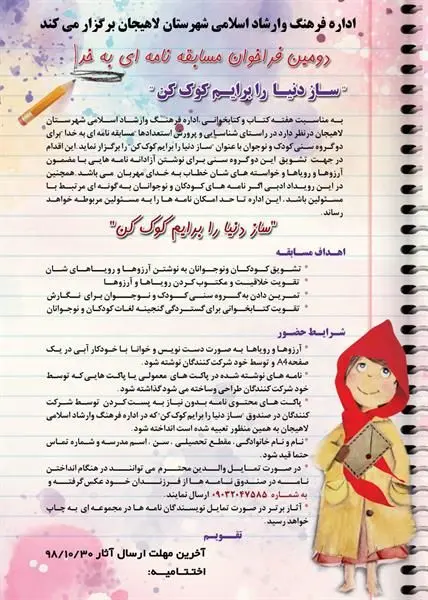 اداره فرهنگ وارشاد اسلامی شهرستان لاهیجان برگزار می کند
دومین فراخوان مسابقه نامه ای به خدا
"ساز دنیا را برایم کوک کن"
به مناسبت هفته کتاب و کتابخوانی ،اداره فرهنگ وارشاد اسلامی شهرستان
لاهیجان درنظر دارد در راستای شناسایی و پرورش استعدادها "مسابقه نامه ای به خدا" برای
دو گروه سنی کودک و نوجوان با عنوان "ساز دنیا را برایم کوک کن" را برگزار نماید. این اقدام
در جهت تشویق این دو گروه سنی برای نوشتن آزادانه نامه هایی با مضمون
آرزوها و رویاها و خواسته های شان خطاب به خدای مهربان می باشد. همچنین
در این رویداد ادبی اگر نامه های کودکان و نوجوانان به گونه ای مرتبط با
مسئولین باشد. این اداره تا حد امکان نامه ها را به مسئولین مربوطه خواهد
رساند.
"ساز دنیا را برایم کوک کن"
اهداف مسابقه
* تشویق کودکان ونوجوانان به نوشتن آرزوها و رویاهای شان
* تقویت خلاقیت و مکتوب کردن رویاها و آرزوها
* تمرین دادن به گروه سنی کودک و نوجوان برای نگارش
* تقویت کتابخوانی برای گستردگی گنجینه لغات کودکان و نوجوانان
شرایط حضور
* آرزوها و رویاها به صورت دست نویس و خوانا با خودکار آبی در یک
صفحه A4 و توسط خود شرکت کنندگان نوشته شود.
* نامه های نوشته شده در پاکت های معمولی یا پاکت هایی که توسط
خود شرکت کنندگان طراحی وساخته می شود گذاشته شود.
* پاکت های محتوی نامه بدون نیاز به پست کردن توسط شرکت
کنندگان در صندوق "ساز دنیا را برایم کوک کن" که در اداره فرهنگ وارشاد اسلامی
لاهیجان به همین منظور تعبیه شده است انداخته شود.
* نام و نام خانوادگی، مقطع تحصیلی ، سن ، اسم مدرسه و شماره تماس
حتما قید شود.
* در صورت تمایل والدین محترم می توانند در هنگام انداختن
نامه در صندوق نامه ها از فرزندان خود عکس گرفته و
به شماره ۰۹۰۳۲۰۴۷۵۸۵ ارسال نمایند.
* آثار برتر در صورت تمایل نویسندگان نامه ها در مجموعه ای به چاپ
خواهد رسید.
تقویم
آخرین مهلت ارسال آثار ۹۸/۱۰/۳۰
اختتامیه: